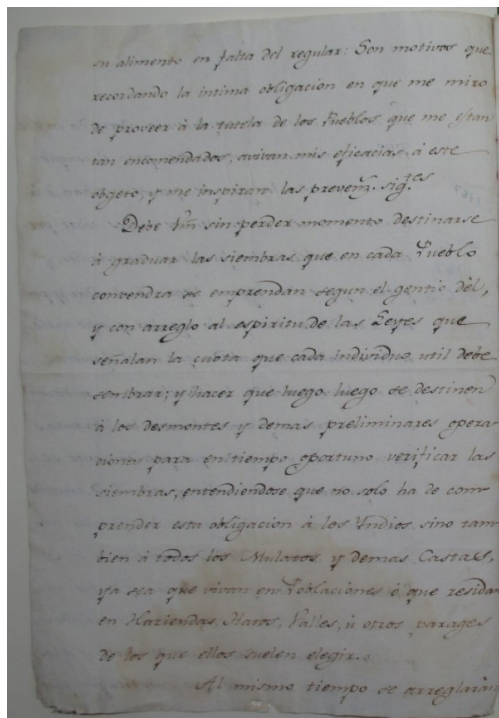 su alimento en falta del regular: Son motivos que
recordando la intima obligacion en que me miro
de proveer à la tutela de los Pueblos que me estan
tan encomendados, avivan mis eficacias à este
objeto, y me inspiran las prevenz.s sig.tes
Debe Vm sin perder momento destinarse
à graduar las siembras que en cada Pueblo
convendra se emprendan segun el gentio dèl,
y con arreglo al espiritu de las Leyes que
señalan la cuota que cada individuo util debe
sembrar; y hacer que luego luego se destinen
à los desmontes y demas preliminares opera
ciones para en tiempo oportuno verificar las
siembras, entendiendose que no solo ha de com
prender esta obligacion à los Yndios sino tam
bien à todos los Mulatos y demas Castas,
ya sea que vivan en Poblaciones ò que residan
en Haziendas, Hatos, Valles, ù otros parages
de los que ellos suelen elegir.
Al mismo tiempo se arreglaràn